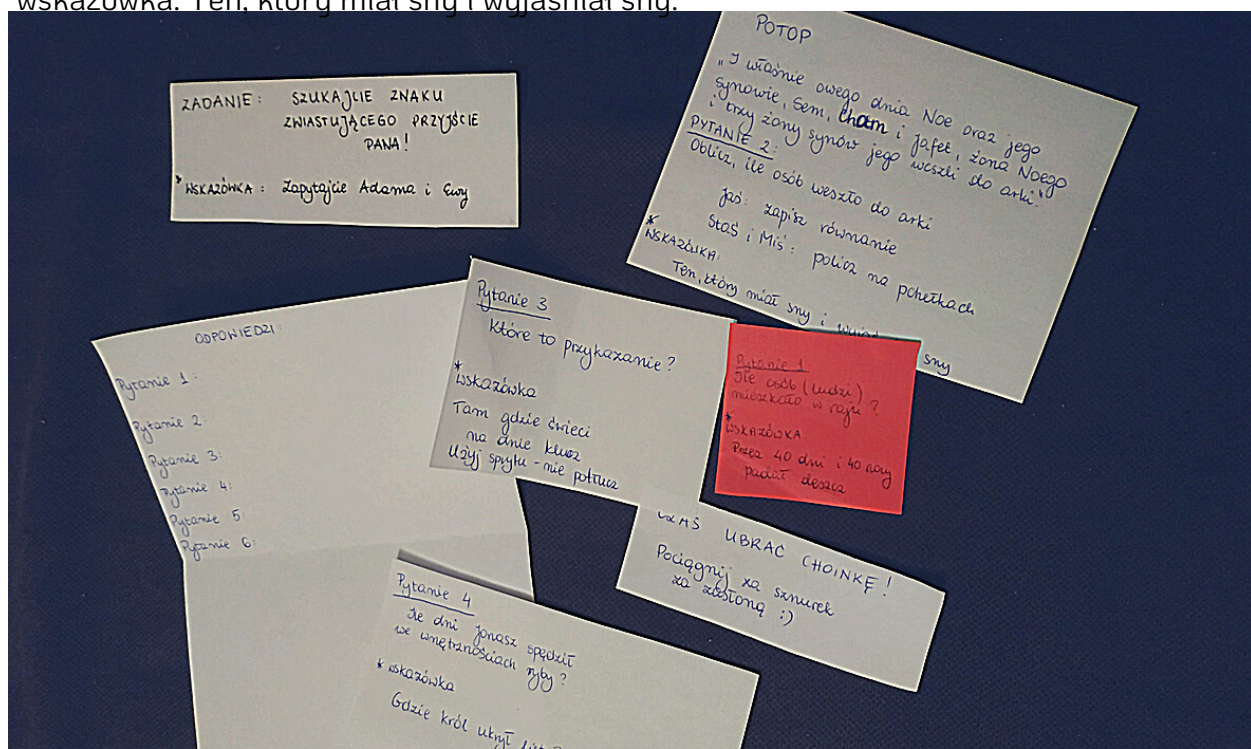 wskazówka: Ten, który miał sny i wyjaśniał sny.
ZADANIE: SZUKAJCIE ZNAKU
ZWIASTUJĄCEGO PRZYJŚCIE
PANA!
* WSKAZÓWKA: Zapytajcie Adama i Ewy
POTOP
"I właśnie owego dnia Noe oraz jego
synowie, Sem, Cham i Jafet, żona Noego
i trzy żony synów jego weszli do arki."
PYTANIE 2:
Oblicz, ile osób weszło do arki
Jaś: zapisz równanie
Staś i Miś: policz na pchełkach
* WSKAZÓWKA:
Ten, który miał sny i sny
ODPOWIEDZI:
Pytanie 1:
Pytanie 2:
Pytanie 3:
Pytanie 4:
Pytanie 5:
Pytanie 6:
Pytanie 3
Które to przykazanie?
* Wskazówka
Tam gdzie świeci
na dnie klucz
Użyj sprytu - nie potłucz
Pytanie 1
Ile osób (ludzi)
mieszkało w raju?
* WSKAZÓWKA:
Przez 40 dni i 40 nocy
padał deszcz
UBRAĆ CHOINKĘ!
Pociągnij za sznurek
za zasłoną :)
Pytanie 4
Ile dni Jonasz spędził
we wnętrznościach ryby?
* Wskazówka
Gdzie król ukrył